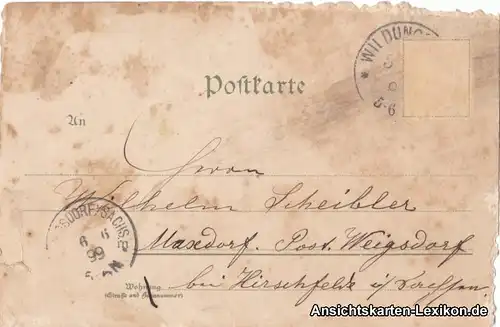 * WILDUNG
5-6
Postkarte
An
Herrn
Wilhelm Scheibler
Maxdorf. Post. Weigsdorf
bei Hirschfelde i/ Sachsen.
SDORF (SACHS.)
6 6
99
Wohnung
(Straße und Hausnummer)
Ansichtskarten-Lexikon.de